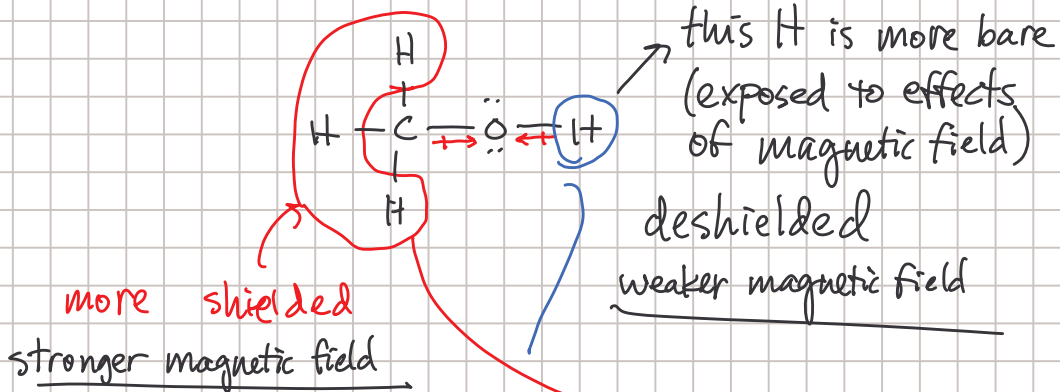 this H is more bare
(exposed to effects
of magnetic field)
H
H C Ö H
H
deshielded
weaker magnetic field
more shielded
stronger magnetic field